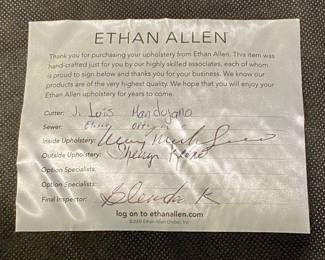 ETHAN ALLEN
Thank you for purchasing your upholstery from Ethan Allen. This item
was hand-crafted just for you by our highly skilled associates, each of whom
is proud to sign below and thanks you for your business. We know our
products are of the very highest quality. We hope that you will enjoy
your Ethan Allen upholstery for years to come.
Cutter: J. Luis Mandujano
Sewer:
Inside Upholstery:
Outside Upholstery:
Option Specialists:
Option Specialists:
Final Inspector: Glenda K
log on to ethanallen.com